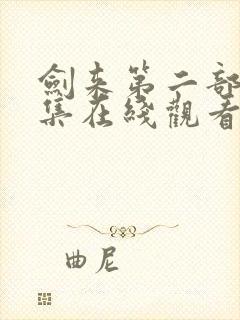 劍来第二部
集在綫觀看
曲尼